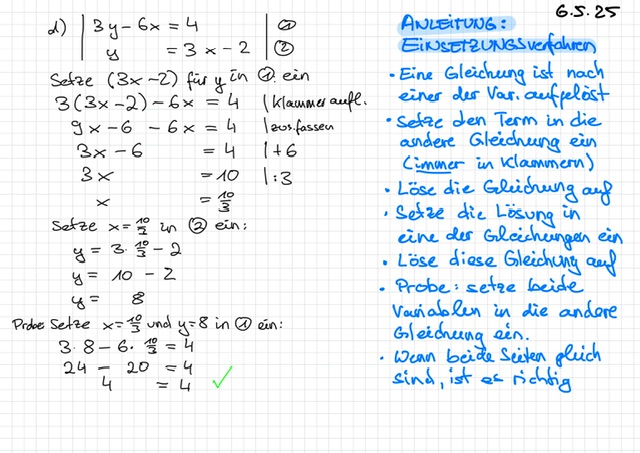 d) | 3y - 6x = 4 | ①
| y = 3x - 2 | ②
Setze (3x-2) für y in ① ein
3(3x-2) - 6x = 4 | Klammer aufl.
9x - 6 - 6x = 4 | zus.fassen
3x - 6 = 4 | +6
3x = 10 | :3
x = 10/3
Setze x = 10/3 in ② ein:
y = 3 · 10/3 - 2
y = 10 - 2
y = 8
Probe Setze x = 10/3 und y = 8 in ① ein:
3 · 8 - 6 · 10/3 = 4
24 - 20 = 4
4 = 4 ✓
6.5.25
ANLEITUNG:
EINSETZUNGSverfahren
• Eine Gleichung ist nach
einer der Var. aufgelöst
• Setze den Term in die
andere Gleichung ein
(immer in Klammern)
• Löse die Gleichung auf
• Setze die Lösung in
eine der Gleichungen ein
• Löse diese Gleichung auf
• Probe: setze beide
Variablen in die andere
Gleichung ein.
• Wenn beide Seiten gleich
sind, ist es richtig